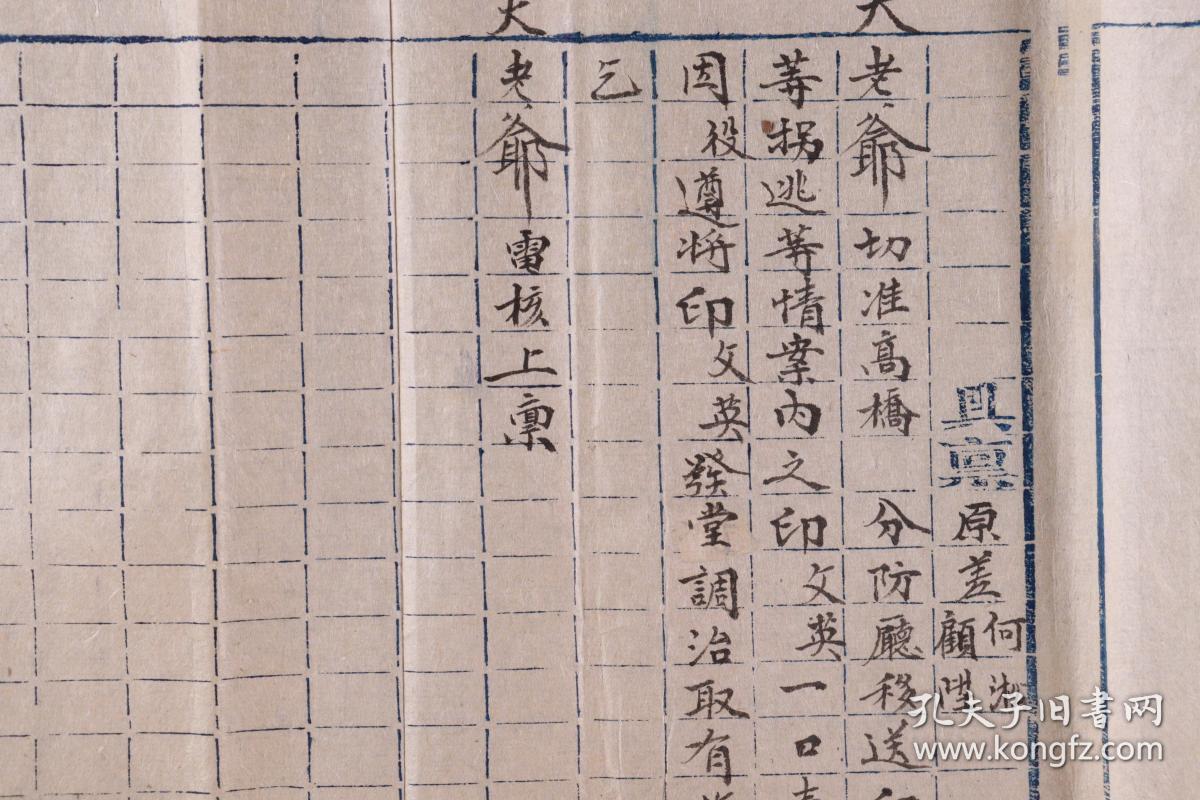 具稟原差何顧陞
大老爺切准高橋 分防廳移送
等拐逃等情案內之印文英一口
因役遵將印文英發堂調治取有
乞
大老爺電核上稟
孔夫子旧書网
www.kongfz.com